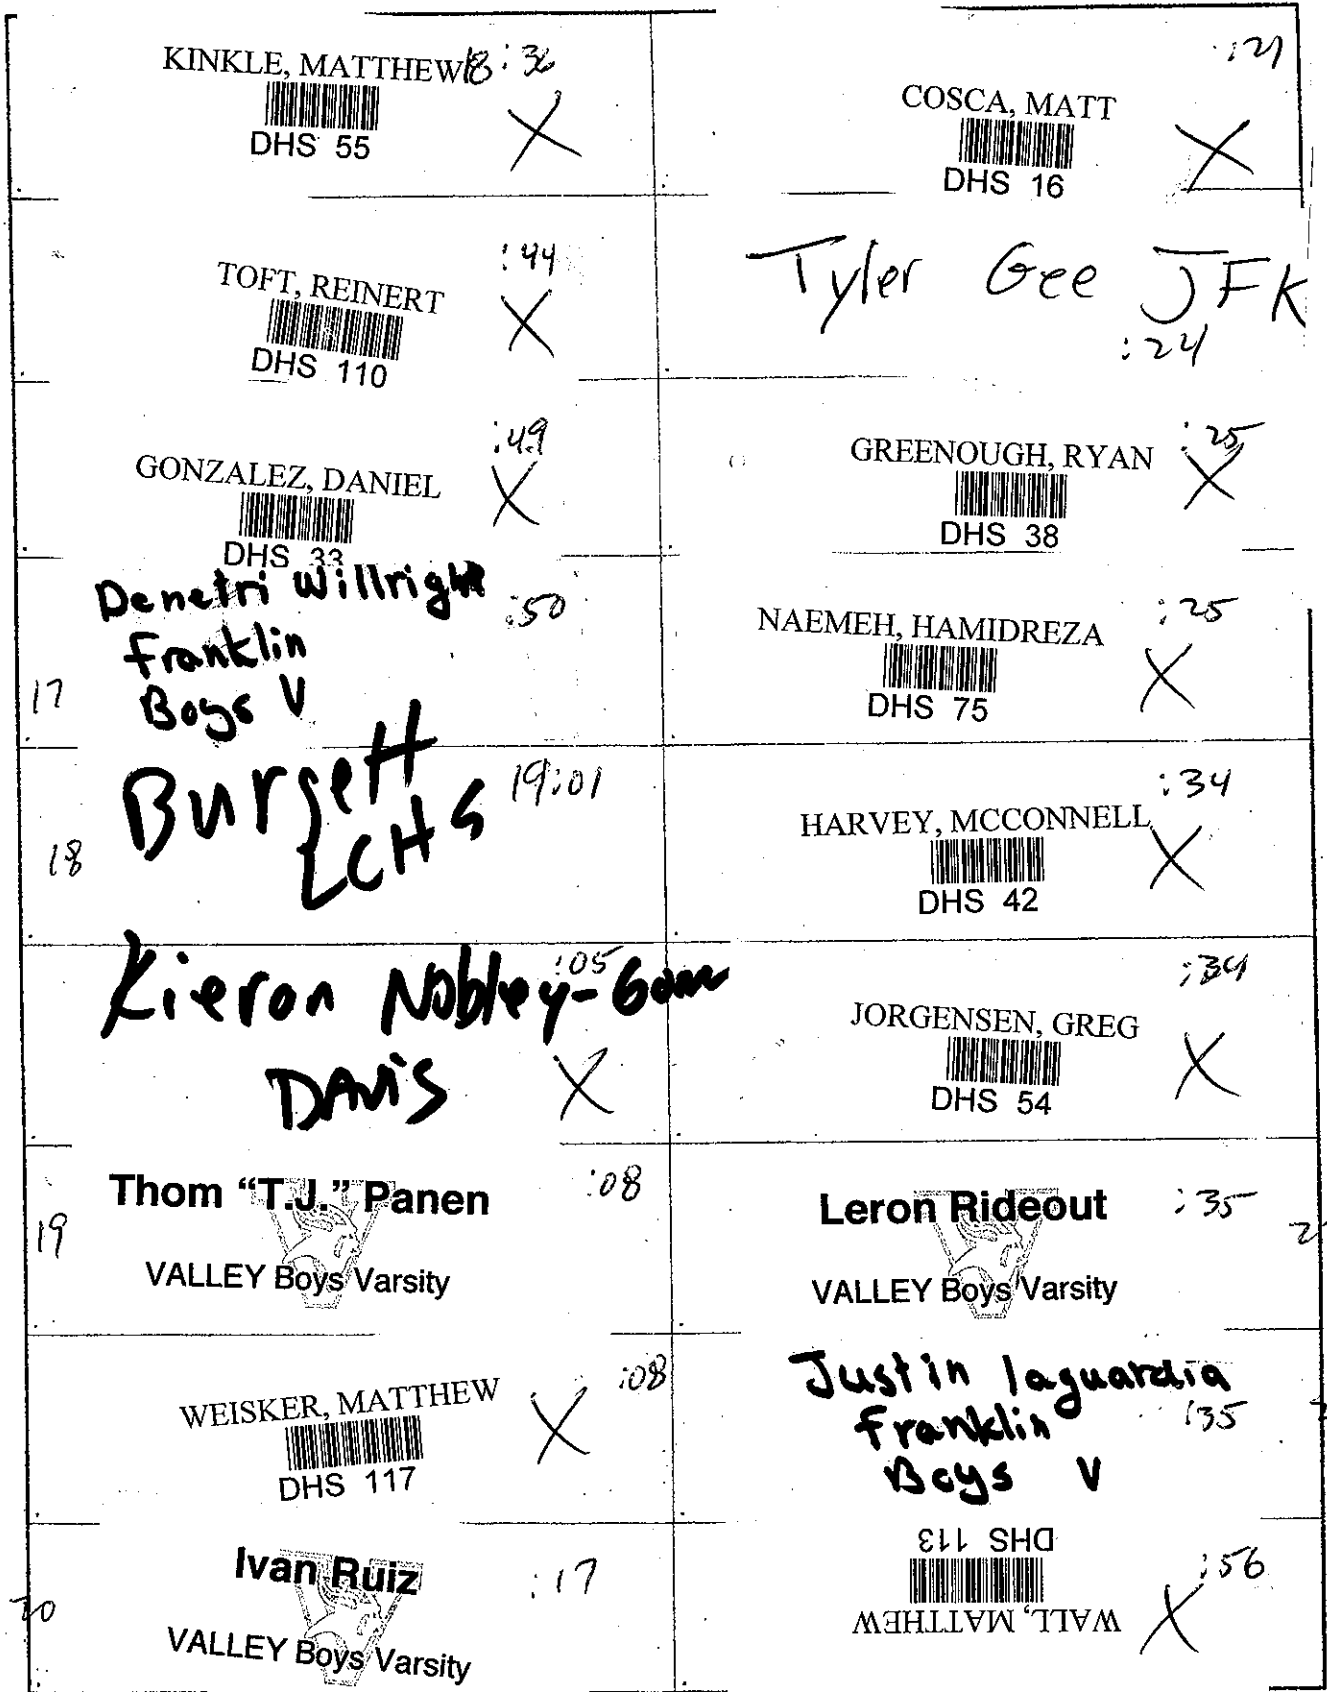 KINKLE, MATTHEW 18:36
X
DHS 55
TOFT, REINERT :44
X
DHS 110
GONZALEZ, DANIEL :49
X
DHS 33
Denetri Willright :50
Franklin
17 Boys V
Burgett 19:01
18 LCHS
Kieron Nobley-Gom :05
DAVIS X
Thom “T.J.” Panen :08
19
VALLEY Boys Varsity
WEISKER, MATTHEW :08
X
DHS 117
Ivan Ruiz :17
20
VALLEY Boys Varsity
:21
COSCA, MATT
X
DHS 16
Tyler Gee JFK
:24
GREENOUGH, RYAN :25
X
DHS 38
NAEMEH, HAMIDREZA :25
X
DHS 75
HARVEY, MCCONNELL :34
X
DHS 42
JORGENSEN, GREG :34
X
DHS 54
Leron Rideout :35
VALLEY Boys Varsity
Justin laguardia
Franklin :35
Boys V
DHS 113
:56
WALL, MATTHEW X